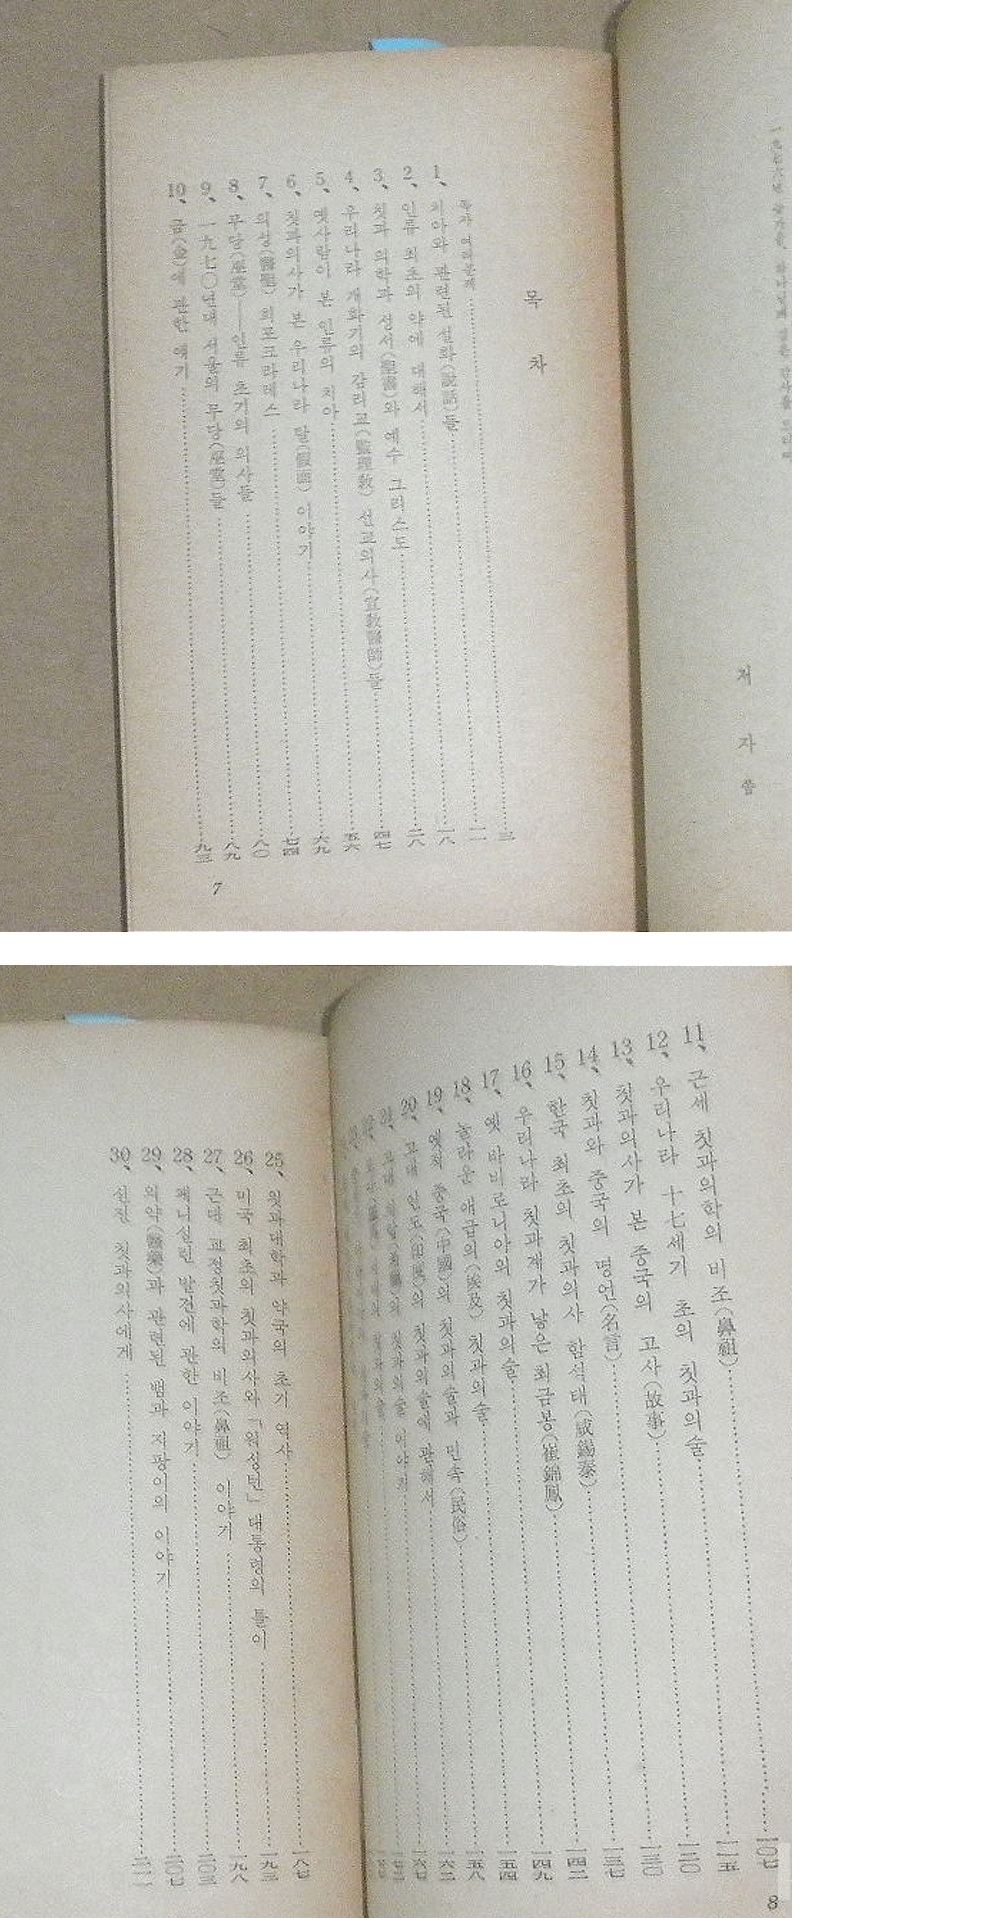 저 자 씀
목 차
독자 여러분께 三
1、 치아와 관련된 설화(說話)들 一一
2、 인류 최초의 약에 대해서 一八
3、 칫과 의학과 성서(聖書)와 예수 그리스도 二八
4、 우리나라 개화기의 감리교(監理敎) 선교의사(宣敎醫師)들 四七
5、 옛사람이 본 인류의 치아 五六
6、 칫과의사가 본 우리나라 탈(假面) 이야기 六九
7、 의성(醫聖) 히포크라테스 七四
8、 무당(巫堂)──인류 초기의 의사들 八〇
9、 一九七〇년대 서울의 무당(巫堂)들 八九
10、 금(金)에 관한 얘기 九三
7
11、 근세 칫과의학의 비조(鼻祖) 一〇七
12、 우리나라 十七세기 초의 칫과의술 一一五
13、 칫과의사가 본 중국의 고사(故事) 一二〇
14、 칫과와 중국의 명언(名言) 一三〇
15、 한국 최초의 칫과의사 함석태(咸錫泰) 一三七
16、 우리나라 칫과계가 낳은 최금봉(崔錦鳳) 一四二
17、 옛 바비로니아의 칫과의술 一四九
18、 놀라운 애급의(埃及) 칫과의술 一五四
19、 옛적 중국(中國)의 칫과의술과 민속(民俗) 一五八
20、 고대 인도(印度)의 칫과의술에 관해서 一六二
21、 고대 의 칫과의술 이야기 一六七
22、 칫과의술
8
25、 칫과대학과 약국의 초기 역사 一八七
26、 미국 최초의 칫과의사와 「워싱턴」 대통령의 틀이 一九三
27、 근대 교정칫과학의 비조(鼻祖) 이야기 一九八
28、 페니실린 발견에 관한 이야기 二〇三
29、 의약(醫藥)과 관련된 뱀과 지팡이의 이야기 二〇七
30、 선진 칫과의사에게 二一一